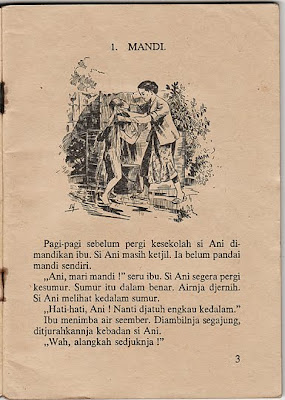 1. MANDI.
Pagi-pagi sebelum pergi kesekolah si Ani di-
mandikan ibu. Si Ani masih ketjil. Ia belum pandai
mandi sendiri.
„Ani, mari mandi !" seru ibu. Si Ani segera pergi
kesumur. Sumur itu dalam benar. Airnja djernih.
Si Ani melihat kedalam sumur.
„Hati-hati, Ani ! Nanti djatuh engkau kedalam."
Ibu menimba air seember. Diambilnja segajung,
ditjurahkannja kebadan si Ani.
„Wah, alangkah sedjuknja !"
3